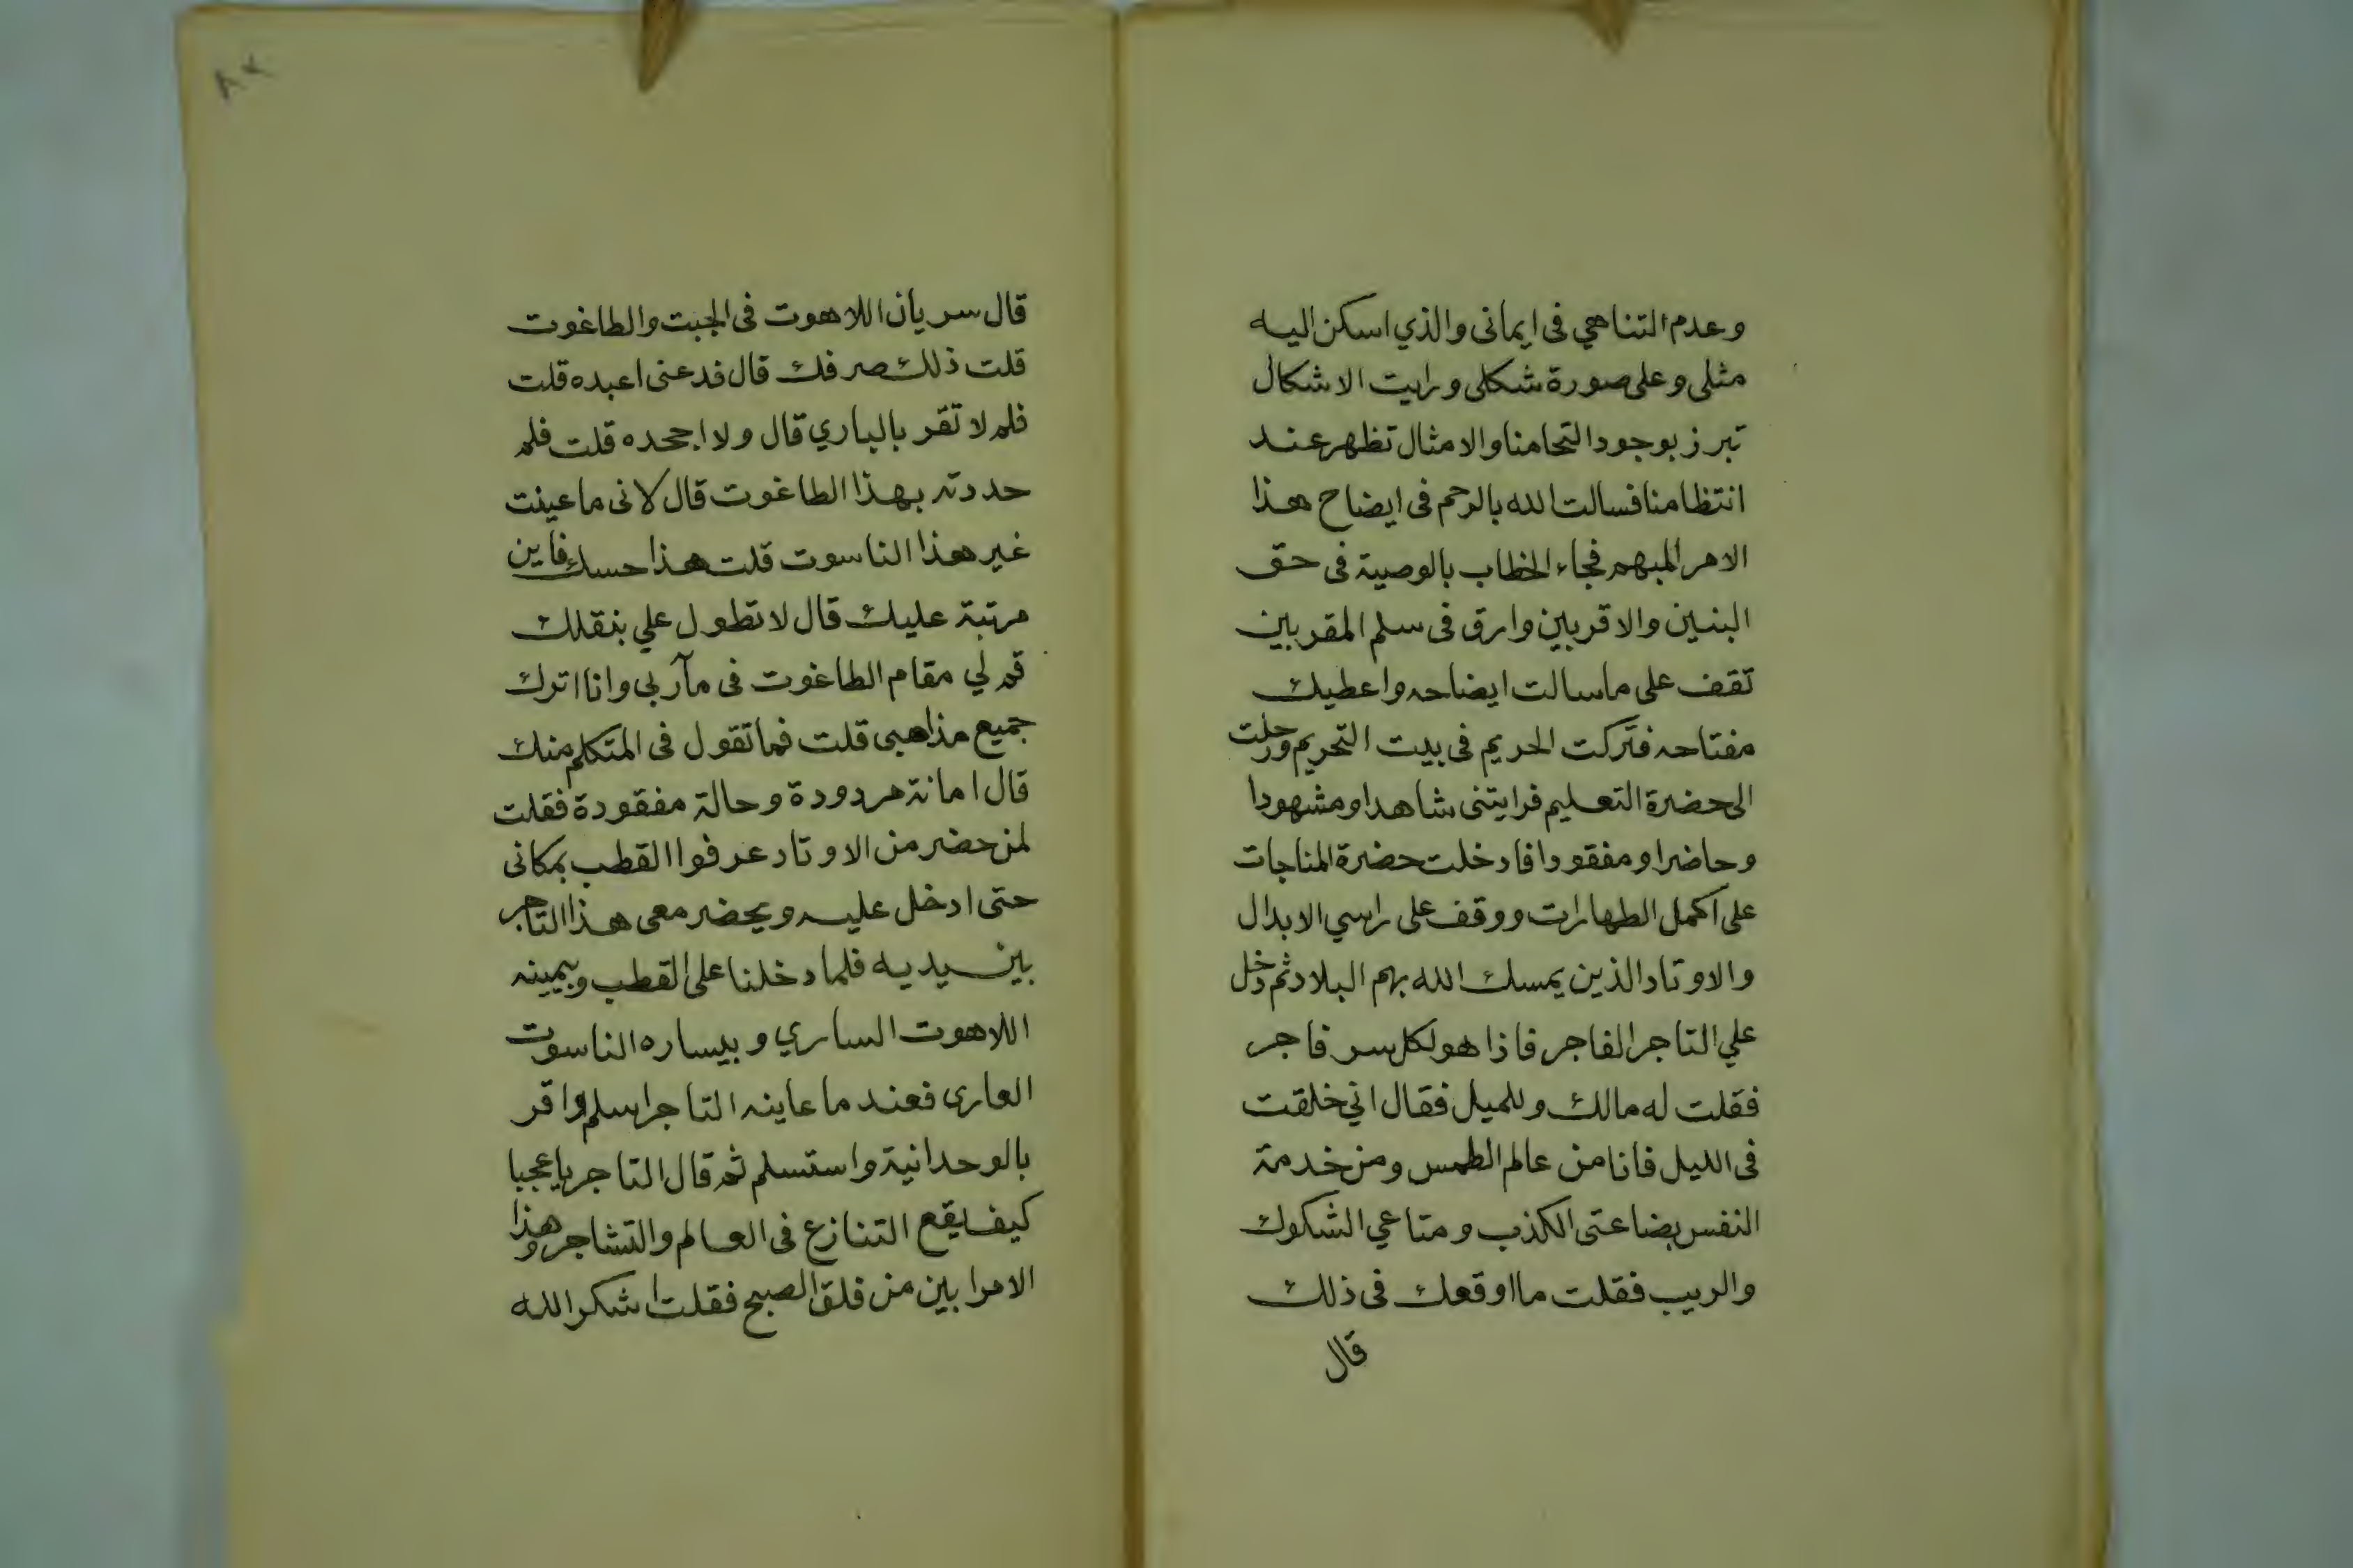 وعدم التناهي فى ايمانى والذي اسكن اليه
مثلى وعلى صورة شكلى ورايت الاشكال
تبرز بوجود التحامنا والامثال تظهر عند
انتظامنا فسالت الله بالرحم فى ايضاح هذا
الامر المبهم فجاء الخطاب بالوصية فى حق
البنين والاقربين وارق فى سلم المقربين
تقف على ما سالت ايضاحه واعطيك
مفتاحه فتركت الحريم فى بيت التحريم ورحلت
الى حضرة التعليم فرايتنى شاهدا ومشهودا
وحاضرا ومفقودا فادخلت حضرة المناجات
على اكمل الطهارات ووقف على راسي الابدال
والاوتاد الذين يمسك الله بهم البلاد ثم دخل
علي التاجر الفاجر فاذا هو لكل سر فاجر
فقلت له مالك ولليل فقال اني خلقت
فى الليل فانا من عالم الطمس ومن خدمة
النفس بضاعتى الكذب ومتاعي الشكوك
والريب فقلت ما اوقعك فى ذلك
قال
٨٢
قال سريان اللاهوت فى الجبت والطاغوت
قلت ذلك صرفك قال فدعنى اعبده قلت
فلم لا تقر بالباري قال ولا اجحده قلت فلم
حددته بهذا الطاغوت قال لانى ما عينت
غير هذا الناسوت قلت هذا حسك فاين
مرتبة عليك قال لا تطول علي بنقلك
قم لي مقام الطاغوت فى مآربى وانا اترك
جميع مذاهبى قلت فما تقول فى المتكلم منك
قال امانة مردودة وحالة مفقودة فقلت
لمن حضر من الاوتاد عرفوا القطب بمكانى
حتى ادخل عليه ويحضر معى هذا التاجر
بين يديه فلما دخلنا على القطب وبيمينه
اللاهوت الساري وبيساره الناسوت
العارى فعند ما عاينه التاجر اسلم واقر
بالوحدانية واستسلم ثم قال التاجر يا عجبا
كيف يقع التنازع فى العالم والتشاجر وهذا
الامر ابين من فلق الصبح فقلت اشكر الله